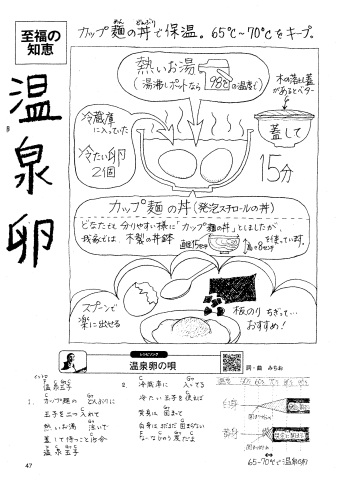 至福の
知恵
カップ麺の丼で保温。65℃~70℃をキープ。
めん
どんぶり
温泉卵
熱いお湯
(湯沸しポットなら98℃の温度で)
木の落し蓋
があるとベター
冷蔵庫
に入っていた
冷たい卵
2個
蓋して
15分
カップ麺の丼(発泡スチロールの丼)
どなたにも分りやすい様に「カップ麺の丼」としましたが、
我家では、木製の丼鉢
直径15センチ
高さ8センチ
を使っています。
スプーンで
楽に出せる
板のりちぎって…
おすすめ!
レシピソング
温泉卵の唄
詞・曲 みちお
イントロ
温泉玉子
1. カップ麺の どんぶりに
玉子を二つ入れて
熱いお湯 注いで
蓋して待つこと15分
温泉玉子
2. 冷蔵庫に 入ってる
冷たい玉子を使えば
黄身は 固まって
白身はまだまだ固まらない
白身
黄身
65-70℃で温泉卵
47